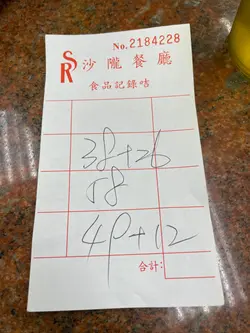 No. 2184228
SR 沙隴餐廳
食品記錄咭
38+26
58
49+12
合計: